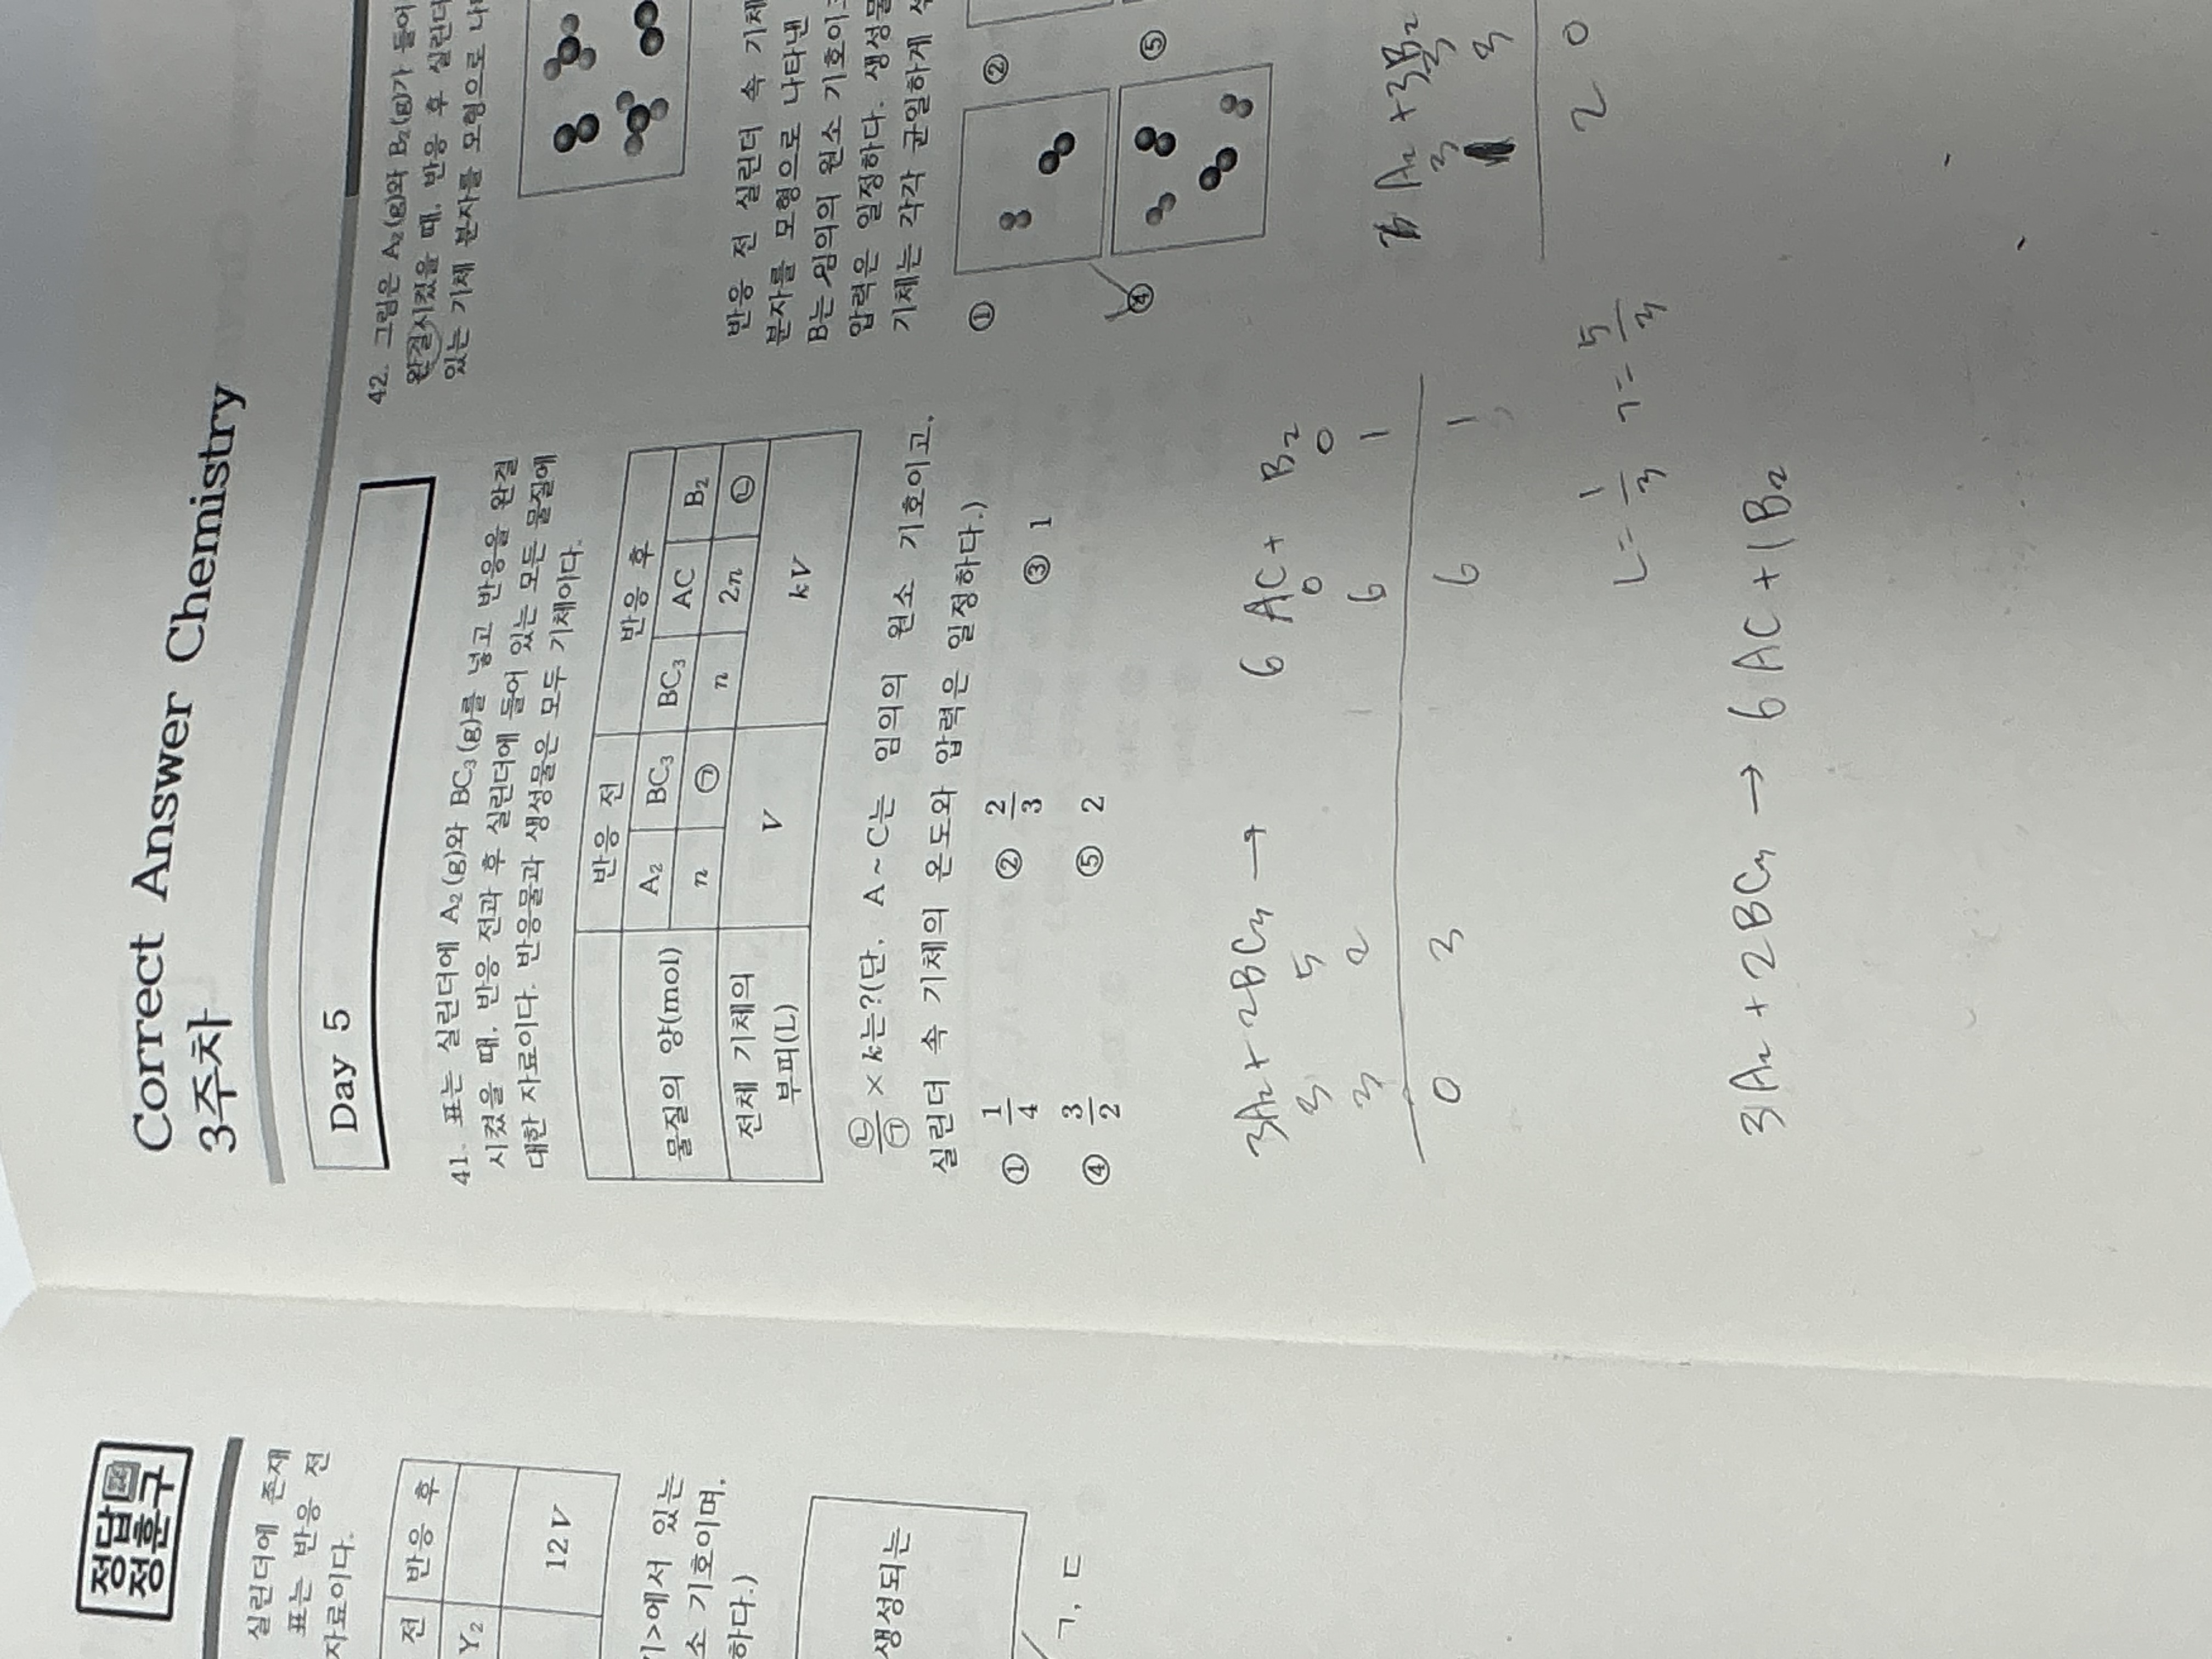 정답
정훈구
실린더에 존재
표는 반응 전
자료이다.
전 반응 후
Y₂
12V
기>에서 있는
소 기호이며,
하다.)
생성되는
ㄱ, ㄷ
Correct Answer Chemistry
3주차
Day 5
41. 표는 실린더에 A₂(g)와 BC₃(g)를 넣고 반응을 완결
시켰을 때, 반응 전과 후 실린더에 들어 있는 모든 물질에
대한 자료이다. 반응물과 생성물은 모두 기체이다.
반응 전 반응 후
A₂ BC₃ BC₃ AC B₂
물질의 양(mol) n ㉠ n 2n ㉡
전체 기체의 부피(L) V kV
㉡/㉠ × k는?(단, A ~ C는 임의의 원소 기호이고,
실린더 속 기체의 온도와 압력은 일정하다.)
① 1/4 ② 2/3 ③ 1
④ 3/2 ⑤ 2
3A₂ + 2BC₃ → 6 AC + B₂
3 5 0 0
3 2 6 1
0 3 6 1
ㄴ = 1/3 ㄱ = 5/3
3A₂ + 2BC₃ → 6 AC + 1B₂
42. 그림은 A₂(g)와 B₂(g)가 들어
완결시켰을 때, 반응 후 실린더
있는 기체 분자를 모형으로 나
반응 전 실린더 속 기체
분자를 모형으로 나타낸
B는 임의의 원소 기호이고
압력은 일정하다. 생성물
기체는 각각 균일하게
① ②
④ ⑤
A₂ + 3B₂
3 3
3
2 0